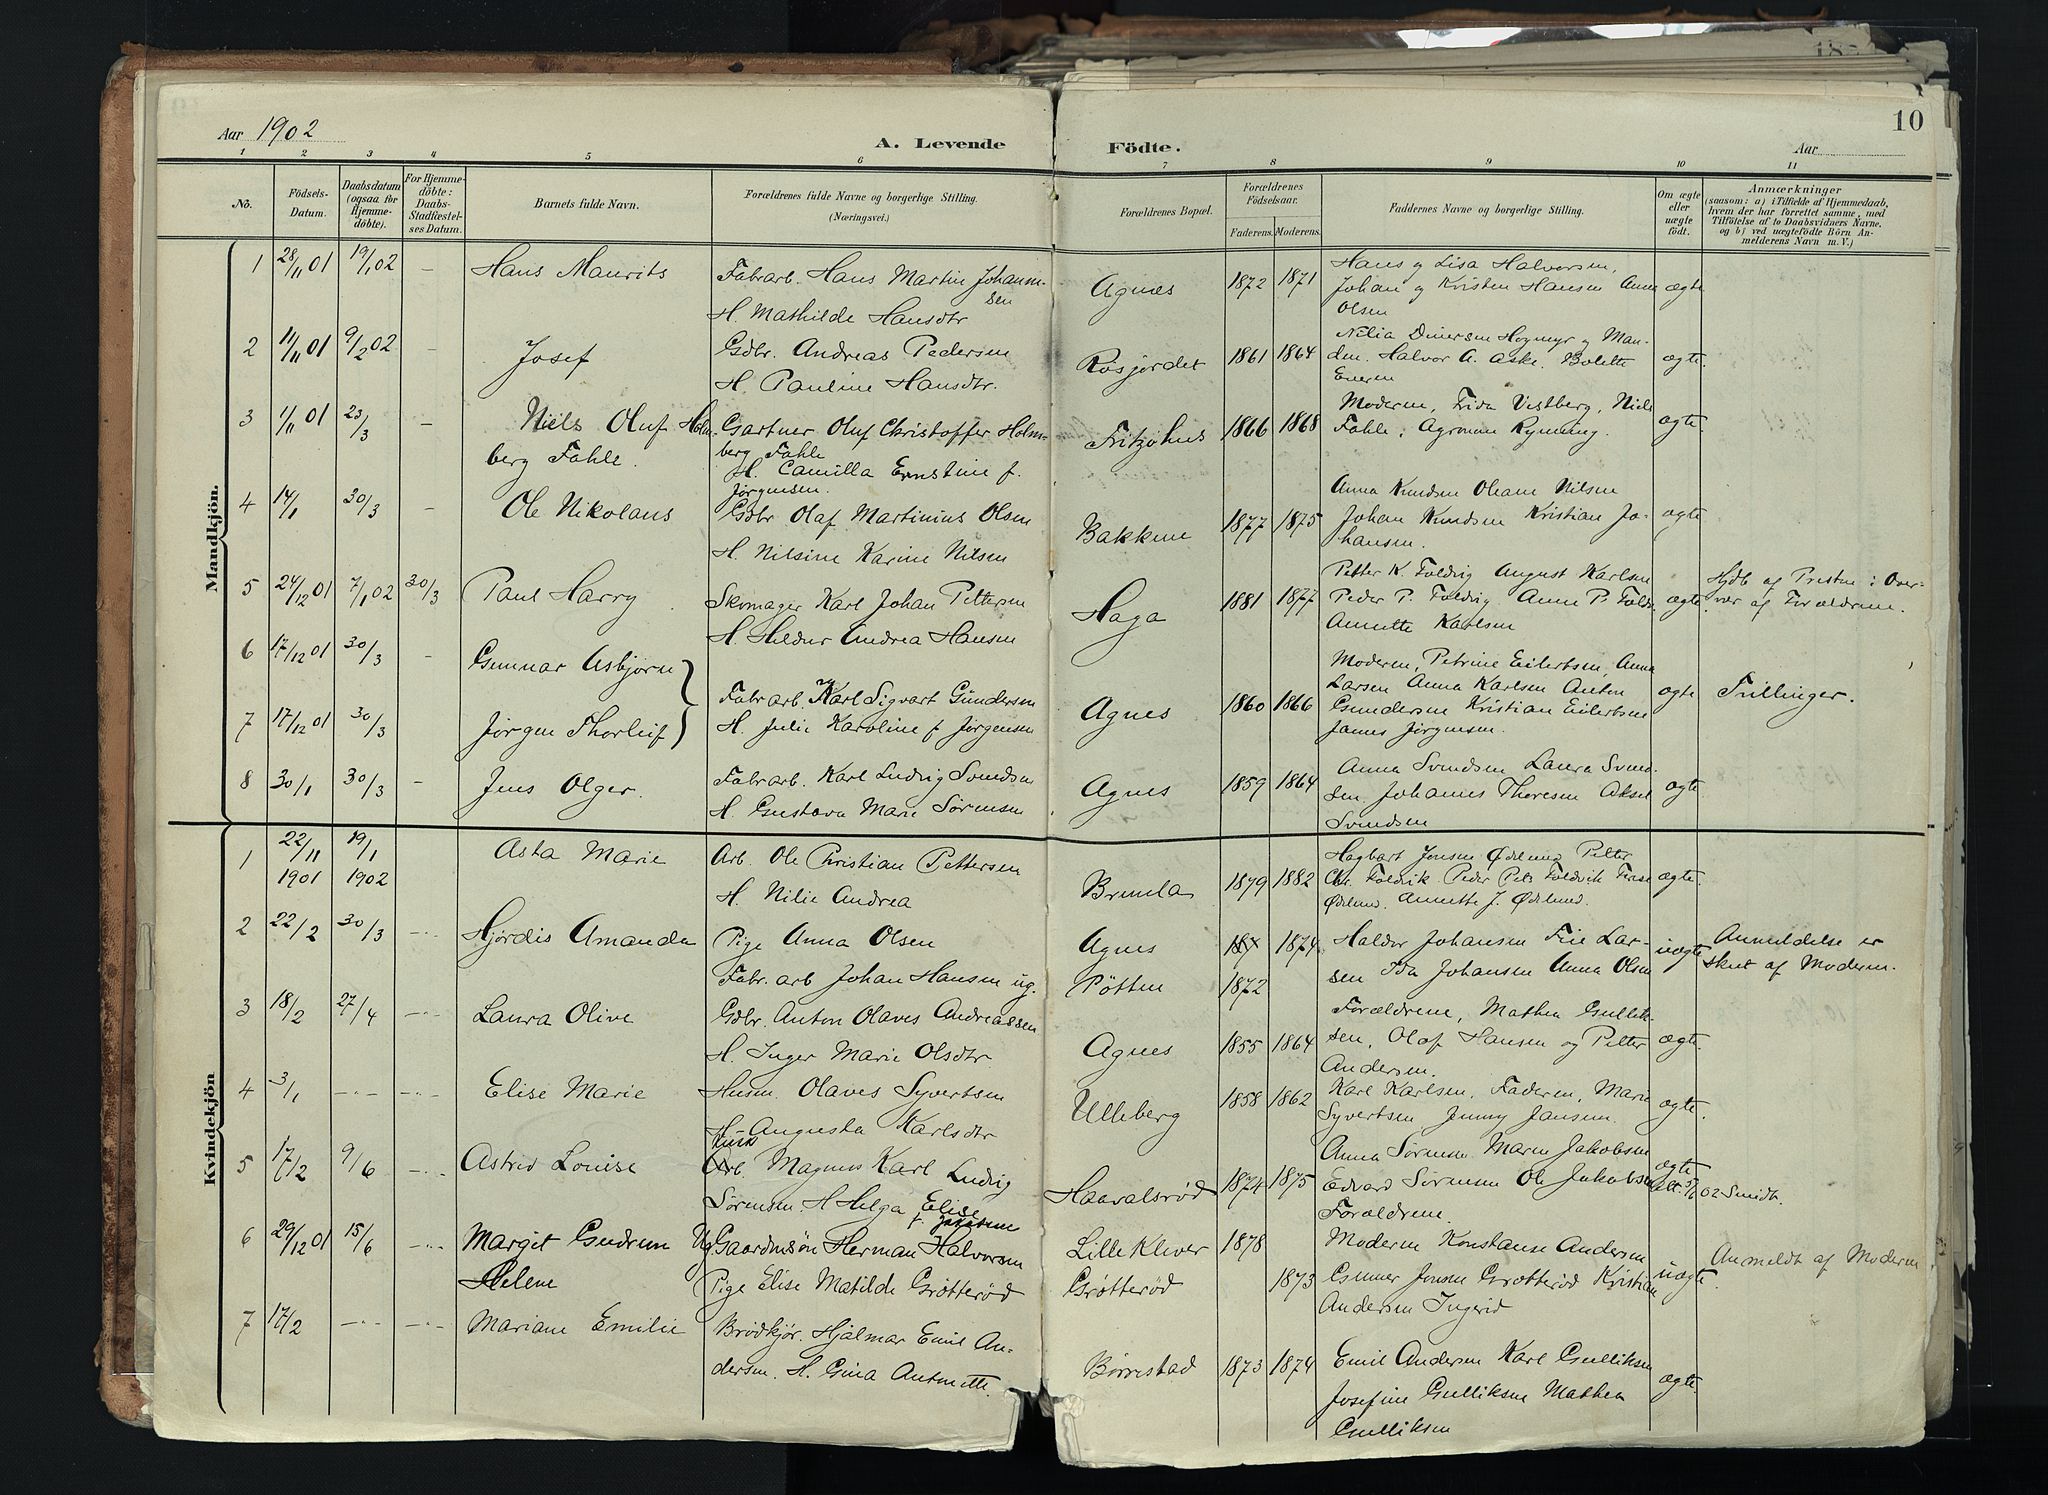 Aar 1902
A. Levende Födte.
Aar
10
1 2 3 4 5 6 7 8 9 10 11
No.
Födsels-Datum.
Daabsdatum (ogsaa för Hjemmedöbte).
For Hjemmedöbte: Daabs-Stadfæstelses Datum.
Barnets fulde Navn.
Forældrenes fulde Navne og borgerlige Stilling. (Næringsvei.)
Forældrenes Bopæl.
Forældrenes Födselsaar.
Faderens. Moderens.
Faddernes Navne og borgerlige Stilling.
Om ægte eller uægte födt.
Anmærkninger
(saasom: a) i Tilfælde af Hjemmedaab,
hvem der har forrettet samme, med
Tilföielse af to Daabsvidners Navne,
og b) ved uægtefödte Börn An-
melderens Navn m. V.)
Mandkjön.
1 28/11 01 19/1 02 - Hans Maurits
Fabrarb. Hans Martin Johann-
sen
H. Mathilde Hansdtr
Agnes 1872 1871
Hans og Lisa Halvorsen,
Johan og Kristen Hansen Anna
Olsen
ægte
2 11/11 01 9/2 02 - Josef
Gdbr. Andreas Pedersen
H. Pauline Hansdtr.
Rosjordet 1861 1864
Halvor A. Aske. Bolette
ægte.
3 1/11 01 23/3 - Niels Oluf Holm-
berg Fahle.
Gartner Oluf Christoffer Holm-
berg Fahle
H. Camilla Ernstine f.
Jørgensen.
Fritzøhus 1866 1868
Moderen, Frida Vestberg, Niels
Fahle,
ægte.
4 14/1 30/3 - Ole Nikolaus
Gdbr Olaf Martinius Olsen
H. Nilsine Karine Nilsen
Bakkene 1877 1875
Anna Knudsen Oleane Nilsen
Johan Knudsen Kristian Jo-
hansen.
ægte
5 24/12 01 7/1 02 30/3 Paul Harry
Skomager Karl Johan Pettersen
H. Hildur Andrea Hansen
Haga 1881 1877
Petter K. Foldvig August Karlsen
Peder P. Foldvig. Anne P. Foldv.
Annette Karlsen
ægte.
Hjdb af Presten i Over-
vær af Forældrene.
6 17/12 01 30/3 - Gunnar Asbjørn
7 17/12 01 30/3 - Jørgen Thorleif
Fabrarb. Karl Sigvart Gundersen
H. Julie Karoline f Jørgensen
Agnes 1860 1866
Moderen, Petrine Eilertsen, Anna
Larsen Anna Karlsen Anton
Gundersen Kristian Eilertsen
James Jørgensen.
ægte
Trillinger.
8 30/1 30/3 - Jens Olger.
Fabrarb. Karl Ludvig Svendsen
H. Gustava Marie Sørensen
Agnes 1859 1864
Anna Svendsen Laura Svend-
sen. Johannes Thoresen Aksel
Svendsen
ægte.
Kvindekjön
1 22/11 1901 19/1 1902 Asta Marie
Arb. Ole Christian Pettersen
H. Nilie Andrea
Brunla 1879 1882
Hagbart Jonsen Ødelund Petter
Chr. Foldvik. Peder Foldvik
Ødelund. Annette J. Ødelund.
ægte.
2 22/2 30/3 -"- Hjørdis Amanda
Pige Anna Olsen
Fabr. arb Johan Hansen ug.
Agnes 1874
Pøtten 1872
Haldor Johansen Fie Lar-
sen Ida Johansen Anna Olsen
uægte
Anmeldelse er
sket af Moderen.
3 18/2 27/4 -"- Laura Olive
Gdbr. Anton Olaves Andreassen
H. Inger Marie Olsdtr
Agnes 1855 1864
Forældrene, Mathea Gullik-
sen, Olaf Hansen og Petter
Andersen.
ægte.
4 3/1 -"- -"- Elise Marie
Husm. Olaves Syvertsen
H. Augusta Karlsdtr
Ulleberg 1858 1862
Karl Karlsen, Faderen, Marie
Syvertsen Jenny Jansen.
ægte.
5 17/2 9/6 -"- Astrid Louise
Arb. Magnus Karl Ludvig
Sørensen. H Helga Elise
f. Jakobsen
Haavalsrød 1874 1875
Anna Sørensen Maren Jakobsen
Edvard Sørensen Ole Jakobsen
Forældrene.
ægte
02 Smidt.
6 29/12 01 15/6 -"- Margit Gudrun
Helene
Ug Gaardmsøn Herman Halvorsen
Pige Elise Matilde Grøtterød
Lille Kliver 1878
Grøtterød 1873
Moderen Konstanse Andersen
Gunner Jensen Grøtterød Kristian
Andersen Ingerid
uægte.
Anmeldt af Moderen
7 17/2 -"- -"- Mariane Emilie
Brødkjør. Hjalmar Emil An-
dersen. H. Gina Antonette.
Børrestad 1873 1874
Emil Andersen Karl Gulliksen
Josefine Gulliksen Mathea
Gulliksen
ægte.